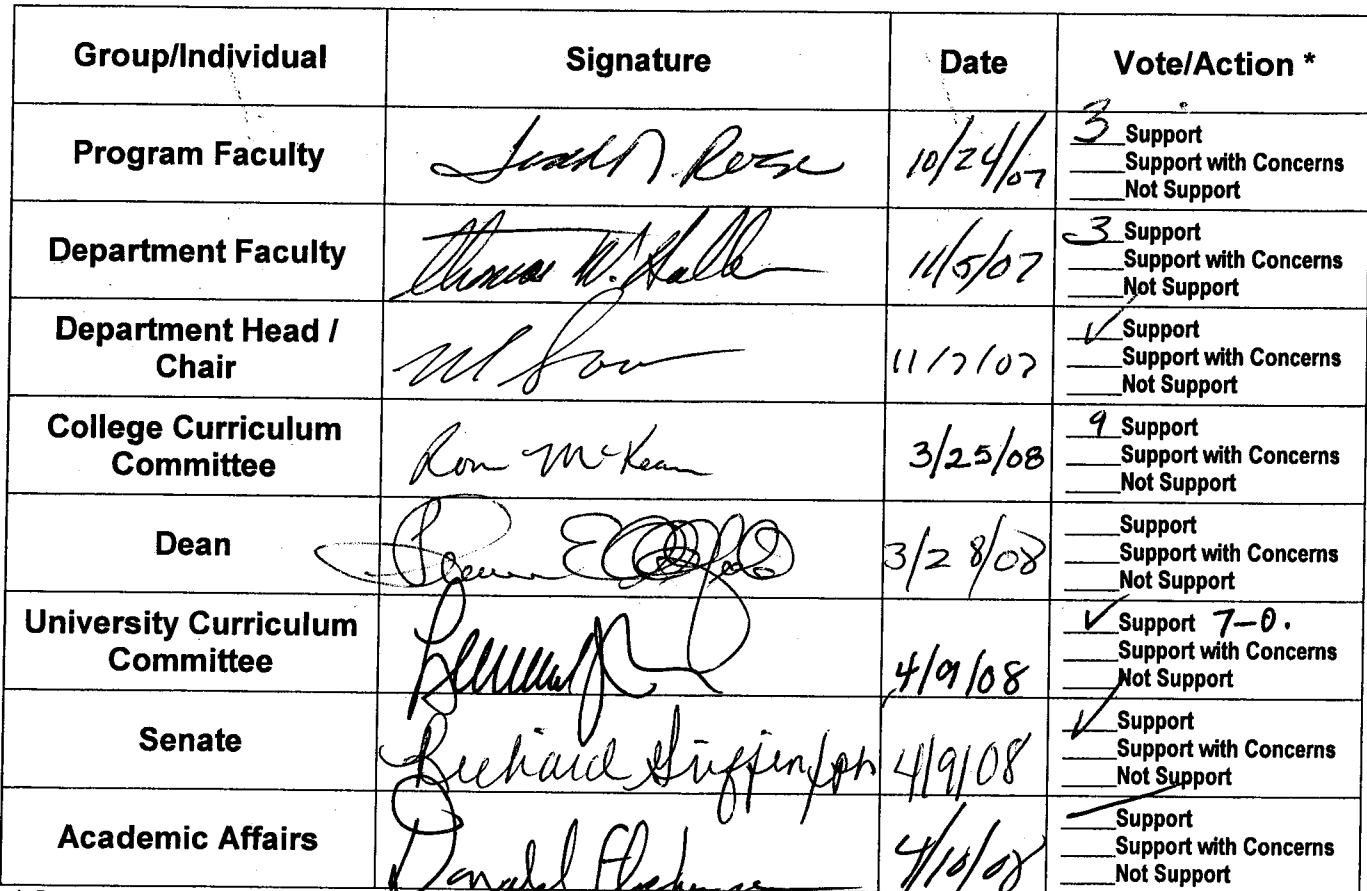 Group/Individual Signature Date Vote/Action *
Program Faculty 10/24/07 3 Support
Support with Concerns
Not Support
Department Faculty Thomas W. 11/5/07 3 Support
Support with Concerns
Not Support
Department Head /
Chair 11/7/07 ✓ Support
Support with Concerns
Not Support
College Curriculum
Committee Ron McKean 3/25/08 9 Support
Support with Concerns
Not Support
Dean 3/28/08 Support
Support with Concerns
Not Support
University Curriculum
Committee 4/9/08 ✓ Support 7-0.
Support with Concerns
Not Support
Senate Richard Griffin/ph 4/9/08 ✓ Support
Support with Concerns
Not Support
Academic Affairs Donald 4/10/08 Support
Support with Concerns
Not Support